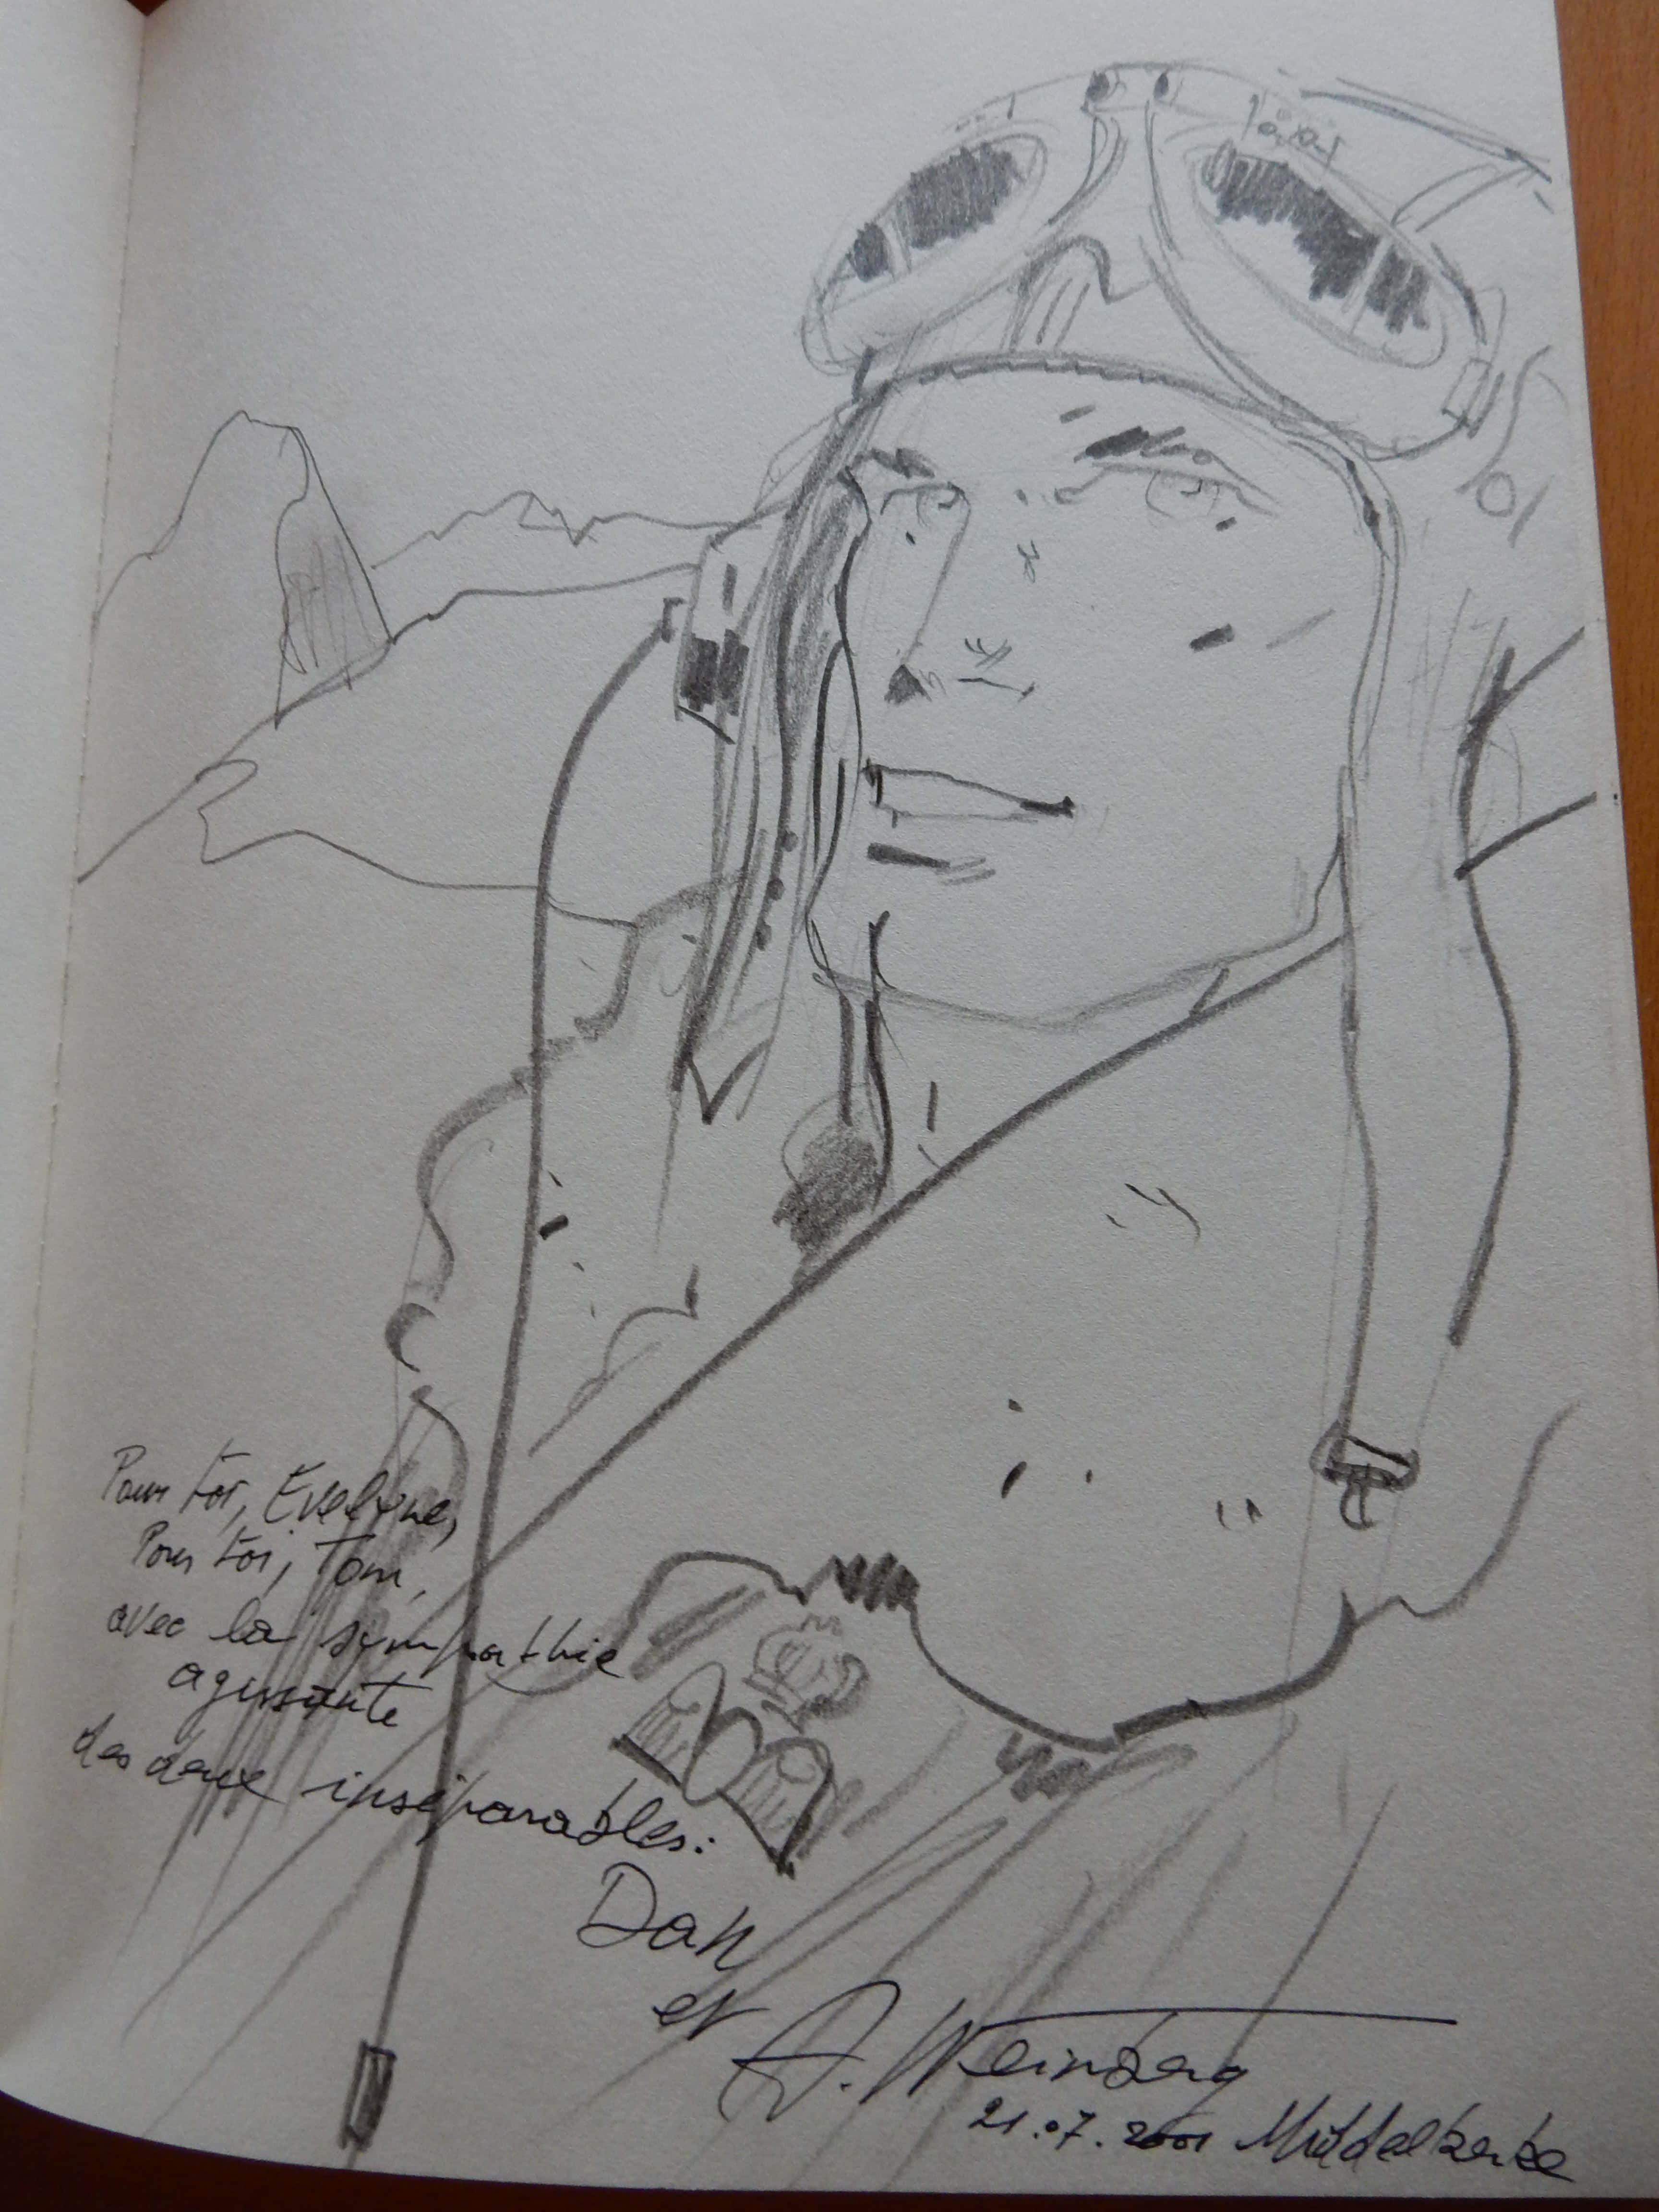 Pour toi, Evelyne,
Pour toi, Tom,
avec la sympathie
agissante
des deux inséparables:
Dan
et A. Weinberg
21.07.2001 Middelkerke